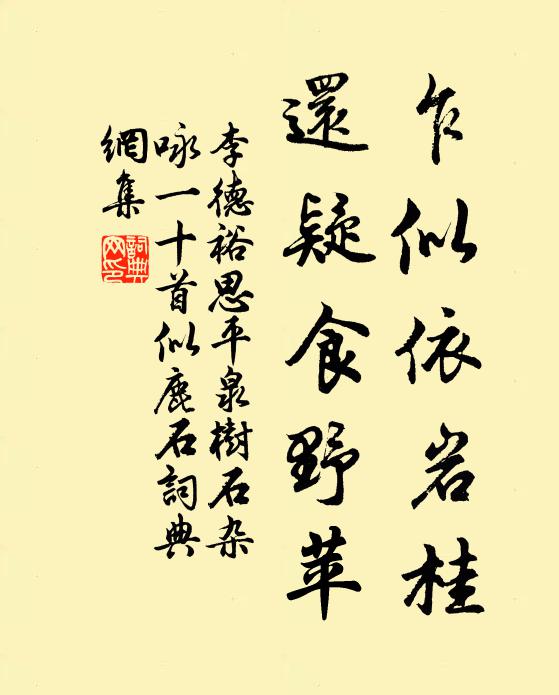 乍似依岩桂
還疑食野苹
李德裕思平泉樹石杂
咏一十首似鹿石詞典
網集
詞典
网印